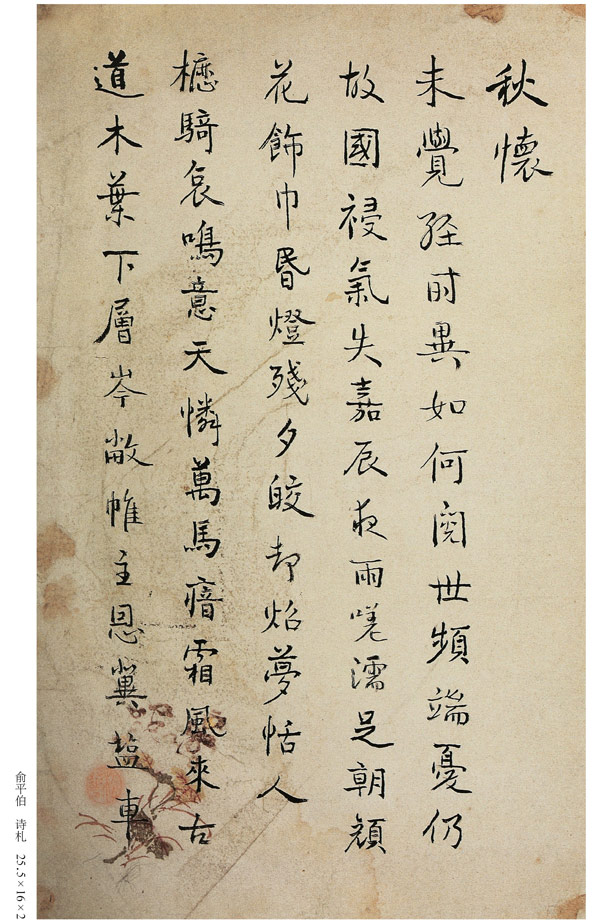 秋懷
未覺經时異如何閱世頻端憂仍
故國祲氣失嘉辰夜雨嗟濡足朝顔
花飾巾昏燈殘夕皎却焰夢恬人
櫪騎哀鳴意天憐萬馬瘖霜風來古
道木葉下層岑敝帷主恩冀塩車
俞平伯 诗札 25.5×16×2